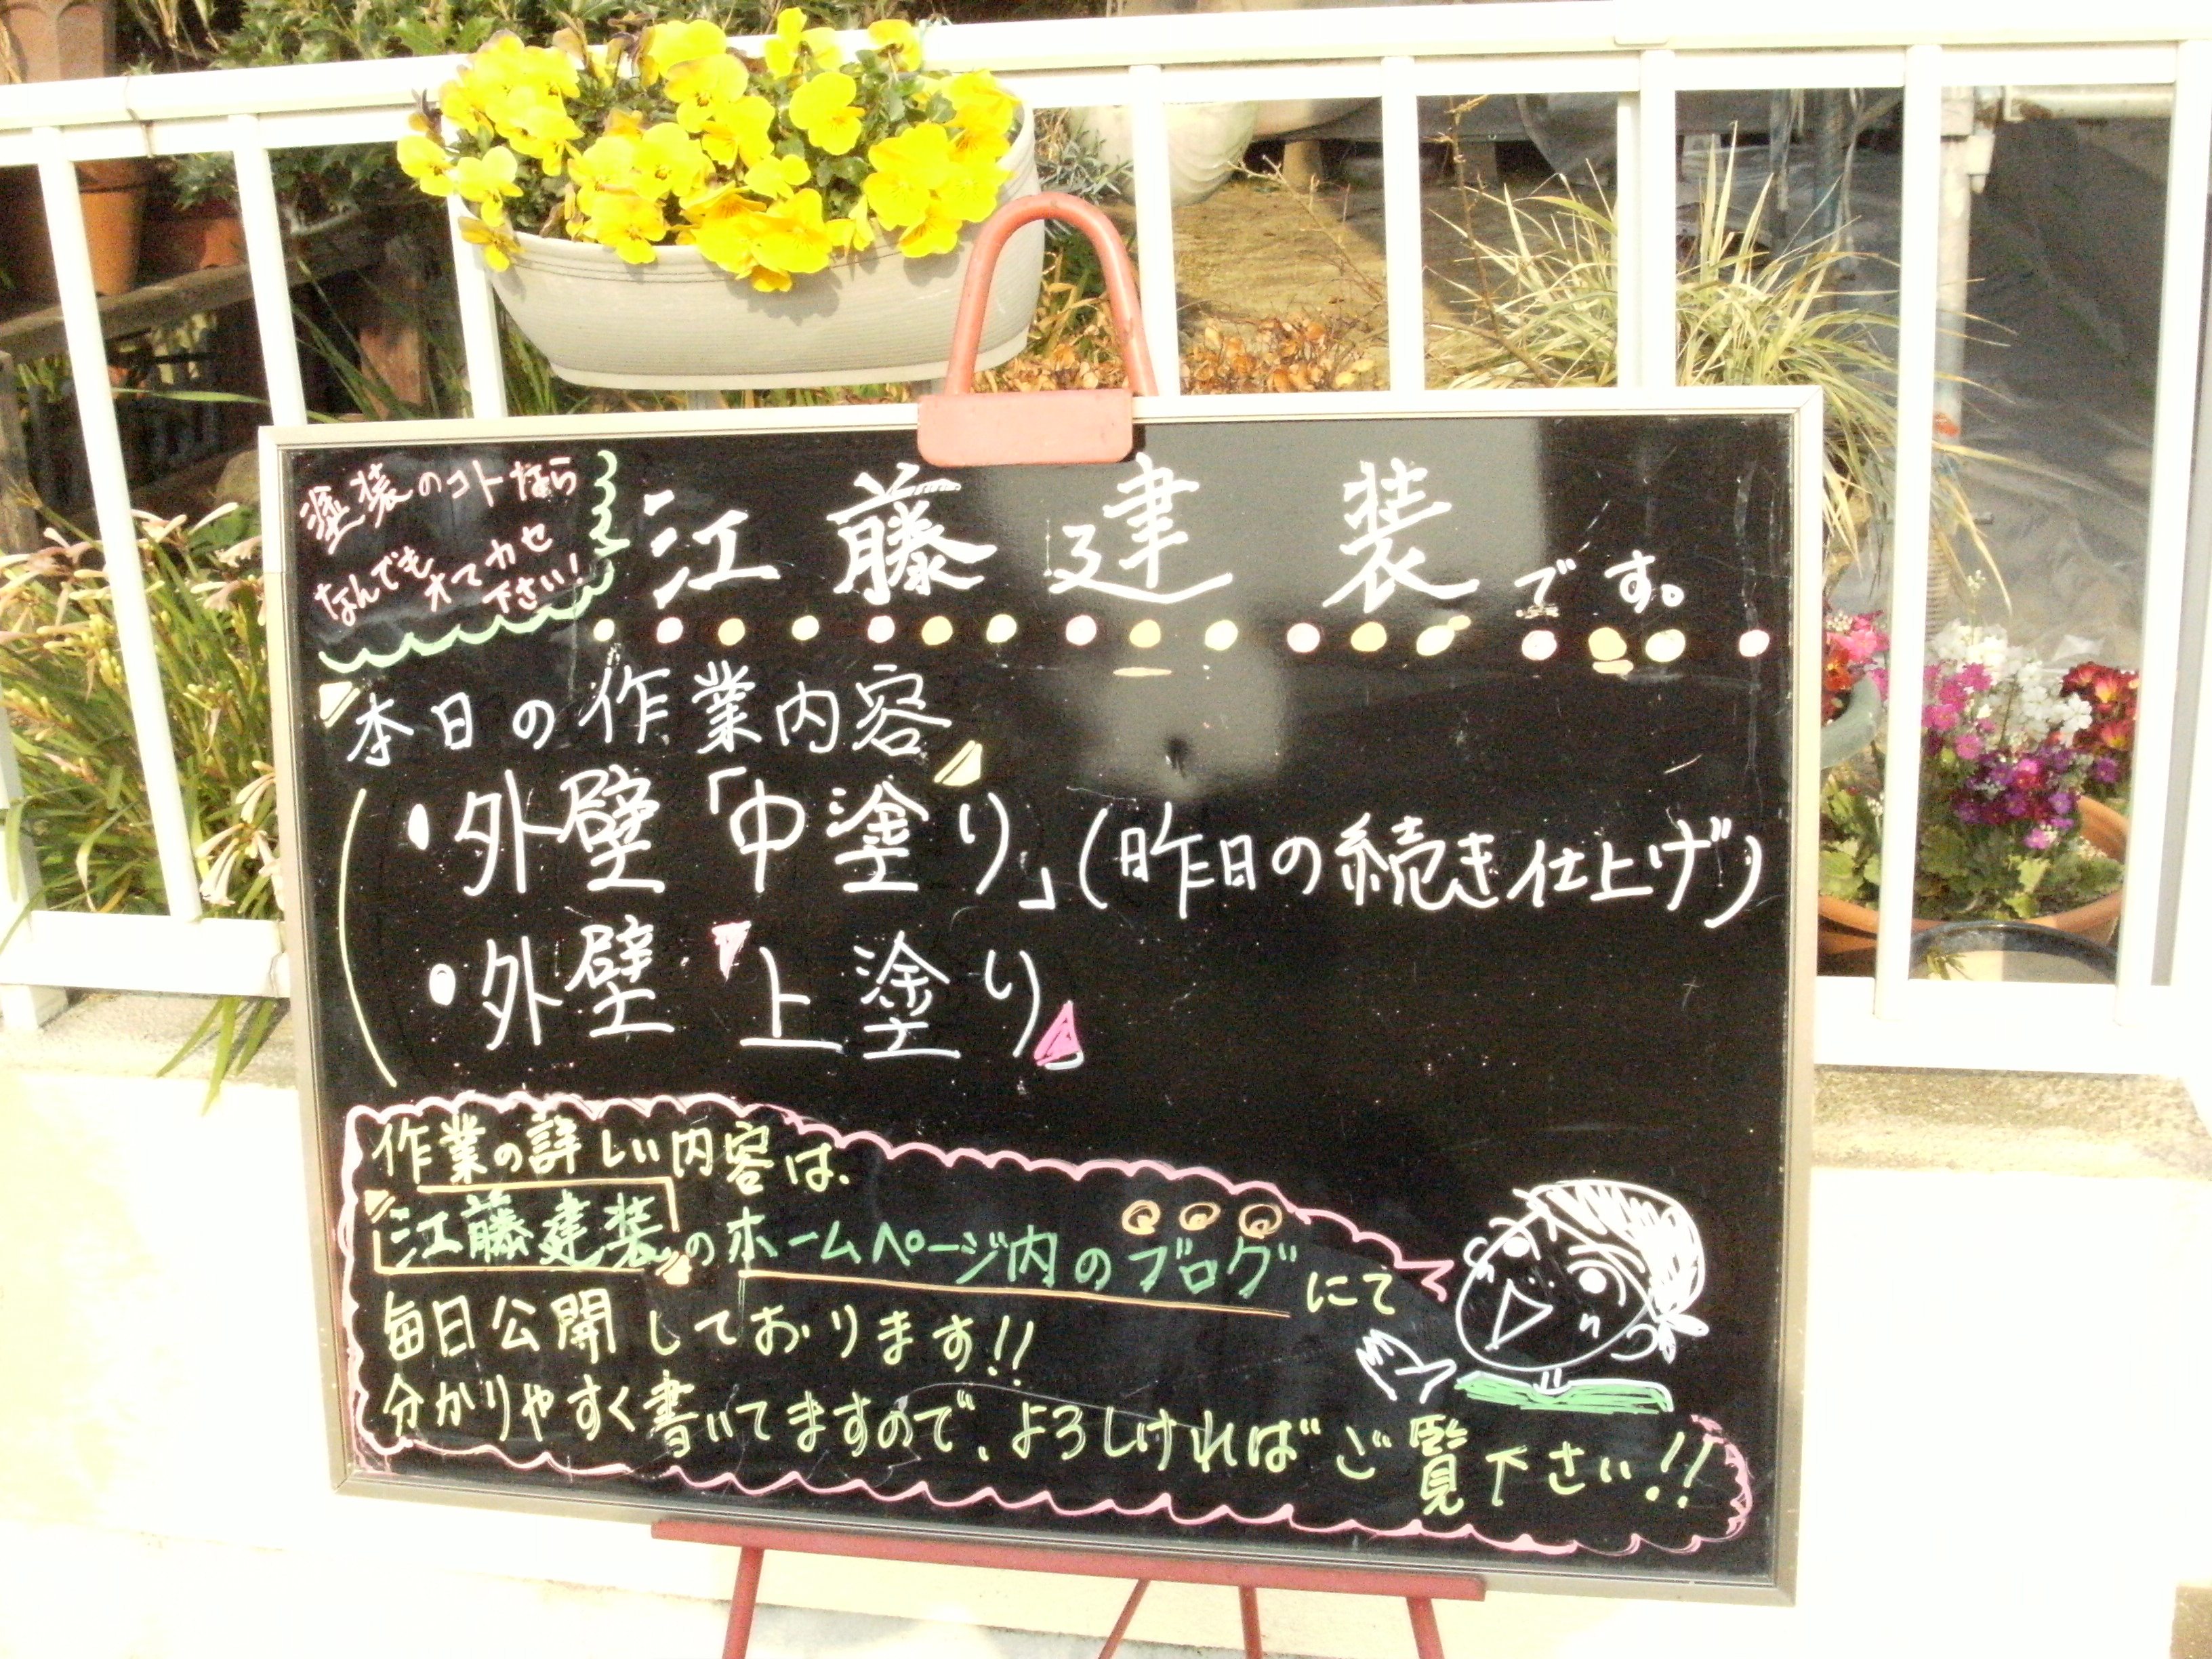 塗装のコトなら
なんでも
オマカセ
下さい!
江藤建装です。
本日の作業内容
・外壁「中塗り」(昨日の続き仕上げ)
・外壁「上塗り」
作業の詳しい内容は、
江藤建装のホームページ内のブログにて
毎日公開しております!!
分かりやすく書いてますので、よろしければご覧下さい!!